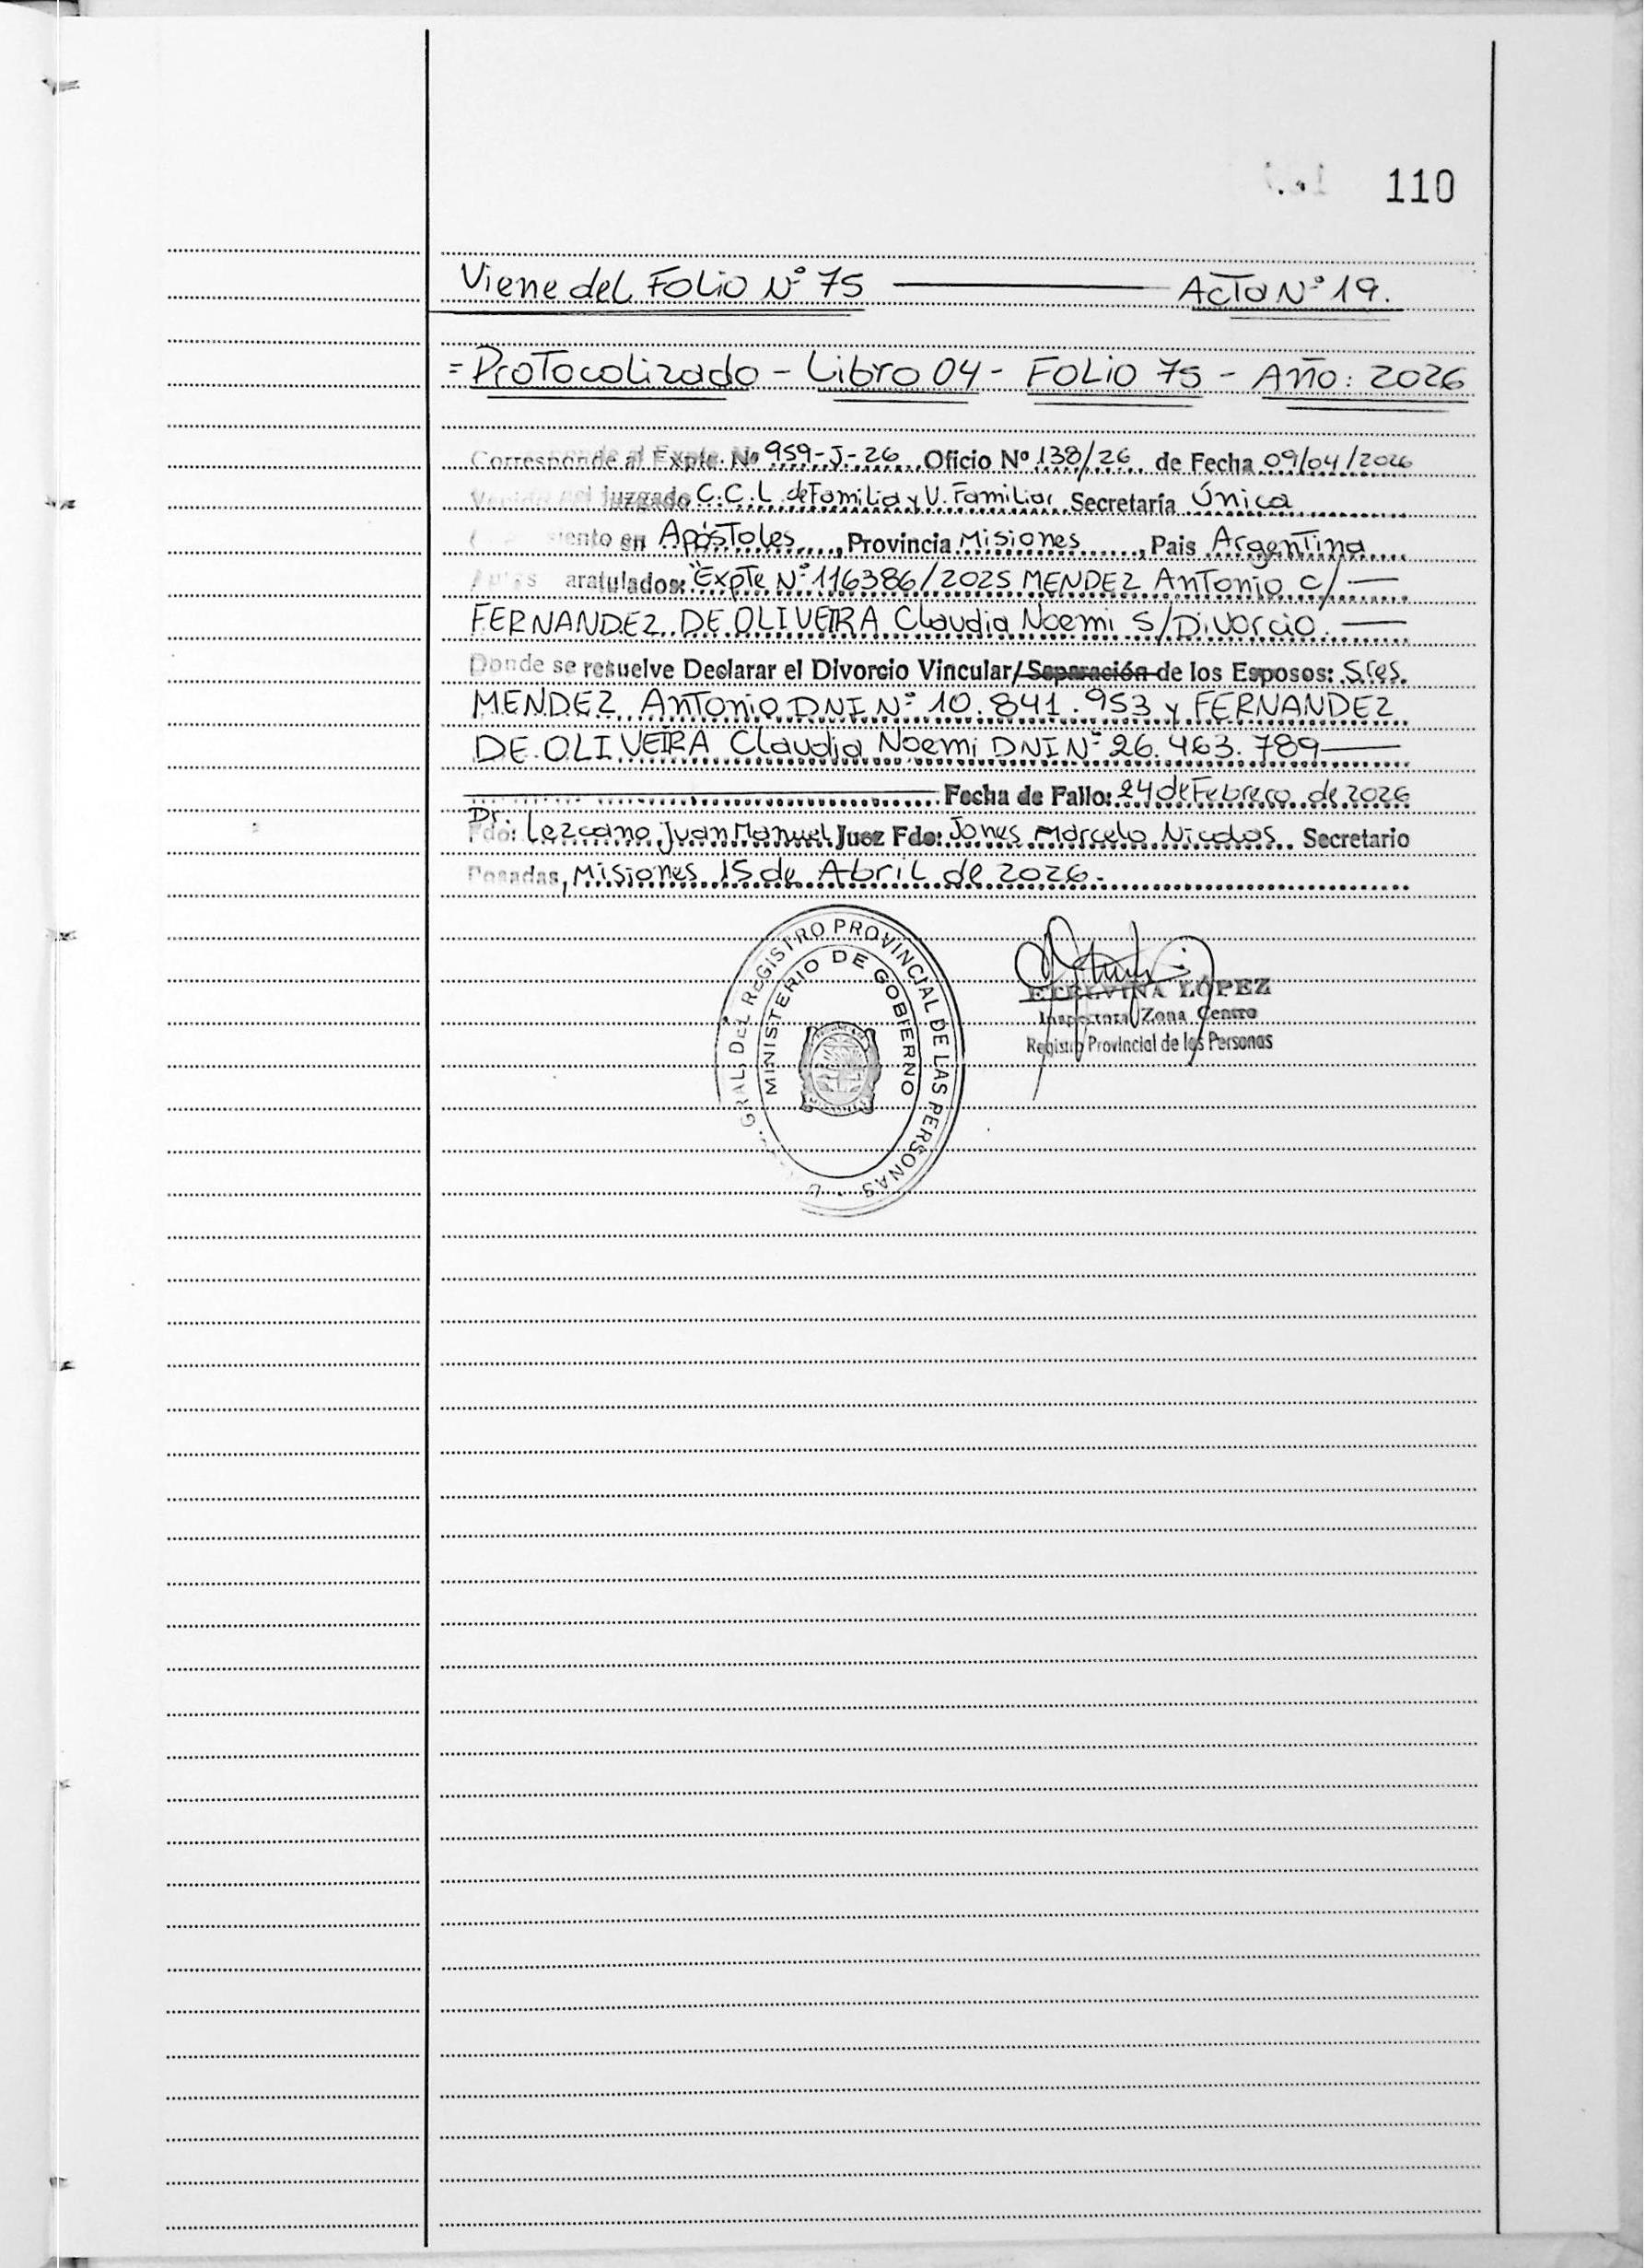 110
Viene del Folio Nº 75 ——— Acta Nº 19.
= Protocolizado - Libro 04 - Folio 75 - Año: 2026
Corresponde al Expte. Nº 959-J-26 Oficio Nº 138/26 de Fecha 09/04/2026
Venido del Juzgado C.C.L. de Familia y V. Familiar Secretaría Única
siento en Apóstoles, Provincia Misiones, Pais Argentina
Autos aratulados: "Expte Nº 116386/2025 MENDEZ Antonio c/ —
FERNANDEZ DE OLIVEIRA Claudia Noemi S/Divorcio. —
Donde se resuelve Declarar el Divorcio Vincular/Separación de los Esposos: Sres.
MENDEZ Antonio DNI Nº 10.841.953 y FERNANDEZ
DE OLIVEIRA Claudia Noemi DNI Nº 26.463.789 —
Fecha de Fallo: 24 de Febrero de 2026
Dr.
Fdo: Lezcano Juan Manuel Juez Fdo: Jones Marcelo Nicolas. Secretario
Posadas, Misiones 15 de Abril de 2026.
GRAL. DEL REGISTRO PROVINCIAL DE LAS PERSONAS
MINISTERIO DE GOBIERNO
MISIONES
ETELVINA LÓPEZ
Inspectora Zona Centro
Registro Provincial de las Personas